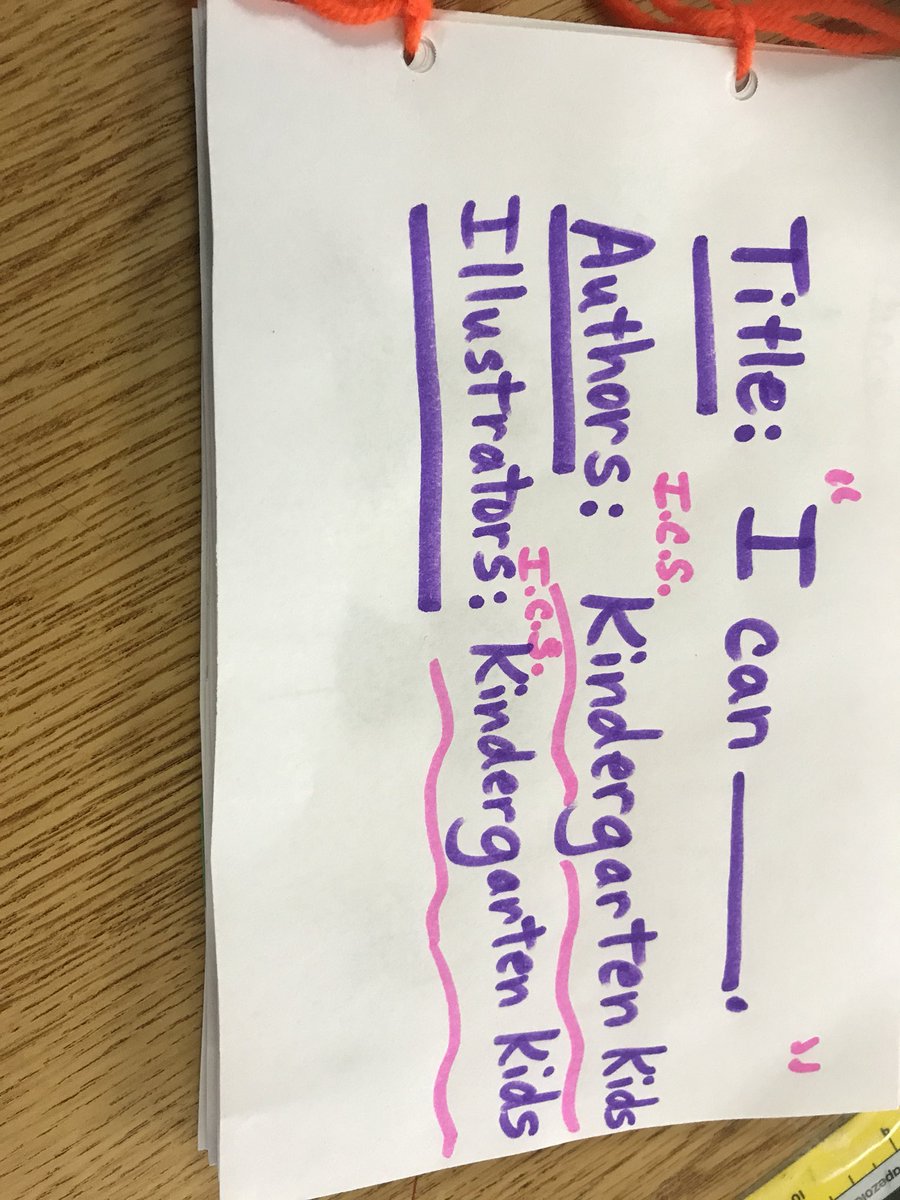 Title: "I can ______."
I.C.S.
Authors: Kindergarten kids
I.C.S.
Illustrators: Kindergarten kids